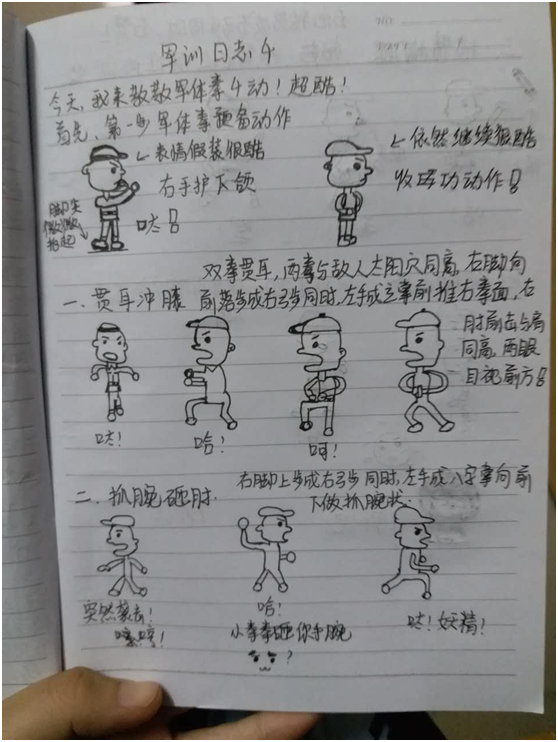 军训日志4
今天，我来教教军体拳4动！超酷！
首先、第一步军体拳预备动作
↙表情假装很酷
右手护下颌
哒！
脚尖
微微
抬起
↙依然继续很酷
收势功动作！
双拳贯耳，两拳与敌人太阳穴同高，右脚向
一、贯耳冲膝 前落步成右弓步同时，左手成立掌前推右拳面，右
肘前击与肩
同高，两眼
目视前方！
哒！
哈！
呵！
右脚上步成右弓步同时，左手成八字掌向前
二、抓腕砸肘.
下做抓腕状.
突然袭击！
哈！
小拳拳砸你手腕
?
哒！妖精！